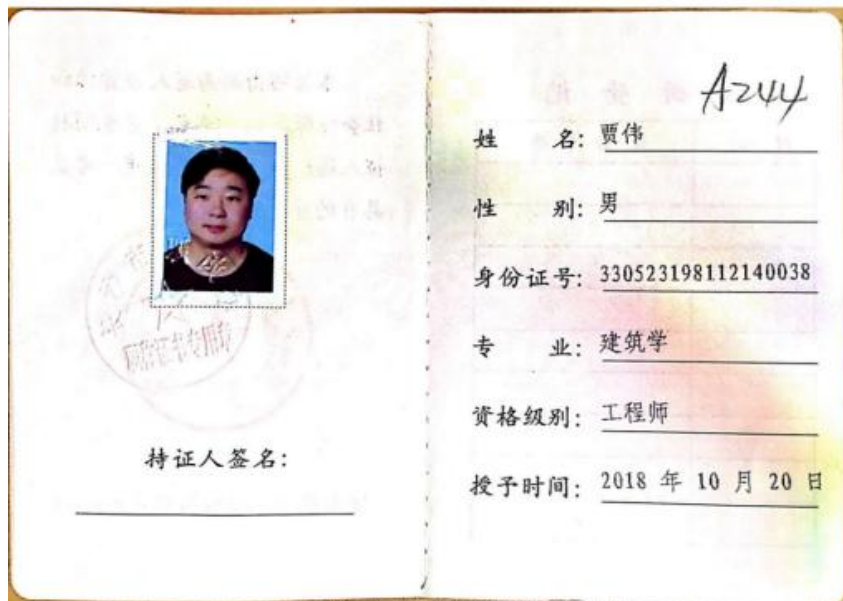 A244
姓 名: 贾伟
性 别: 男
身份证号: 330523198112140038
专 业: 建筑学
资格级别: 工程师
授予时间: 2018 年 10 月 20 日
持证人签名: